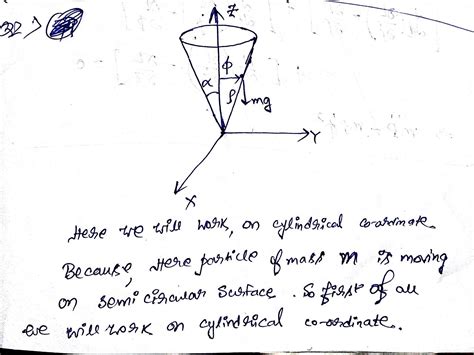 32>
Z
α
ϕ
ρ
mg
Y
X
Here we will work, on cylindrical co-ordinate
Because, Here particle of mass m is moving
on semi circular surface. So first of all
we will work on cylindrical co-ordinate.